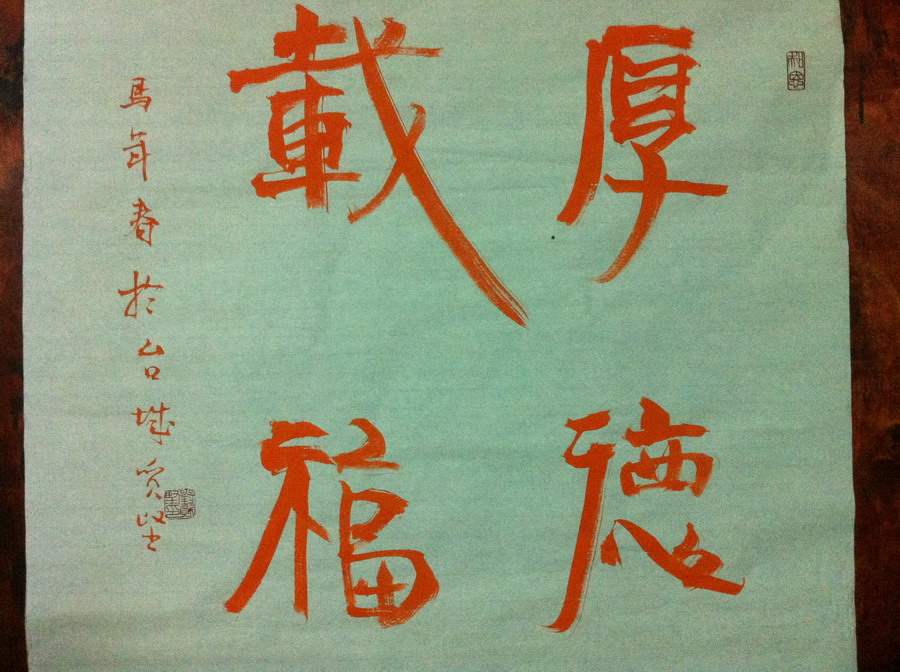 厚德
載福
馬年春於台城貢堅